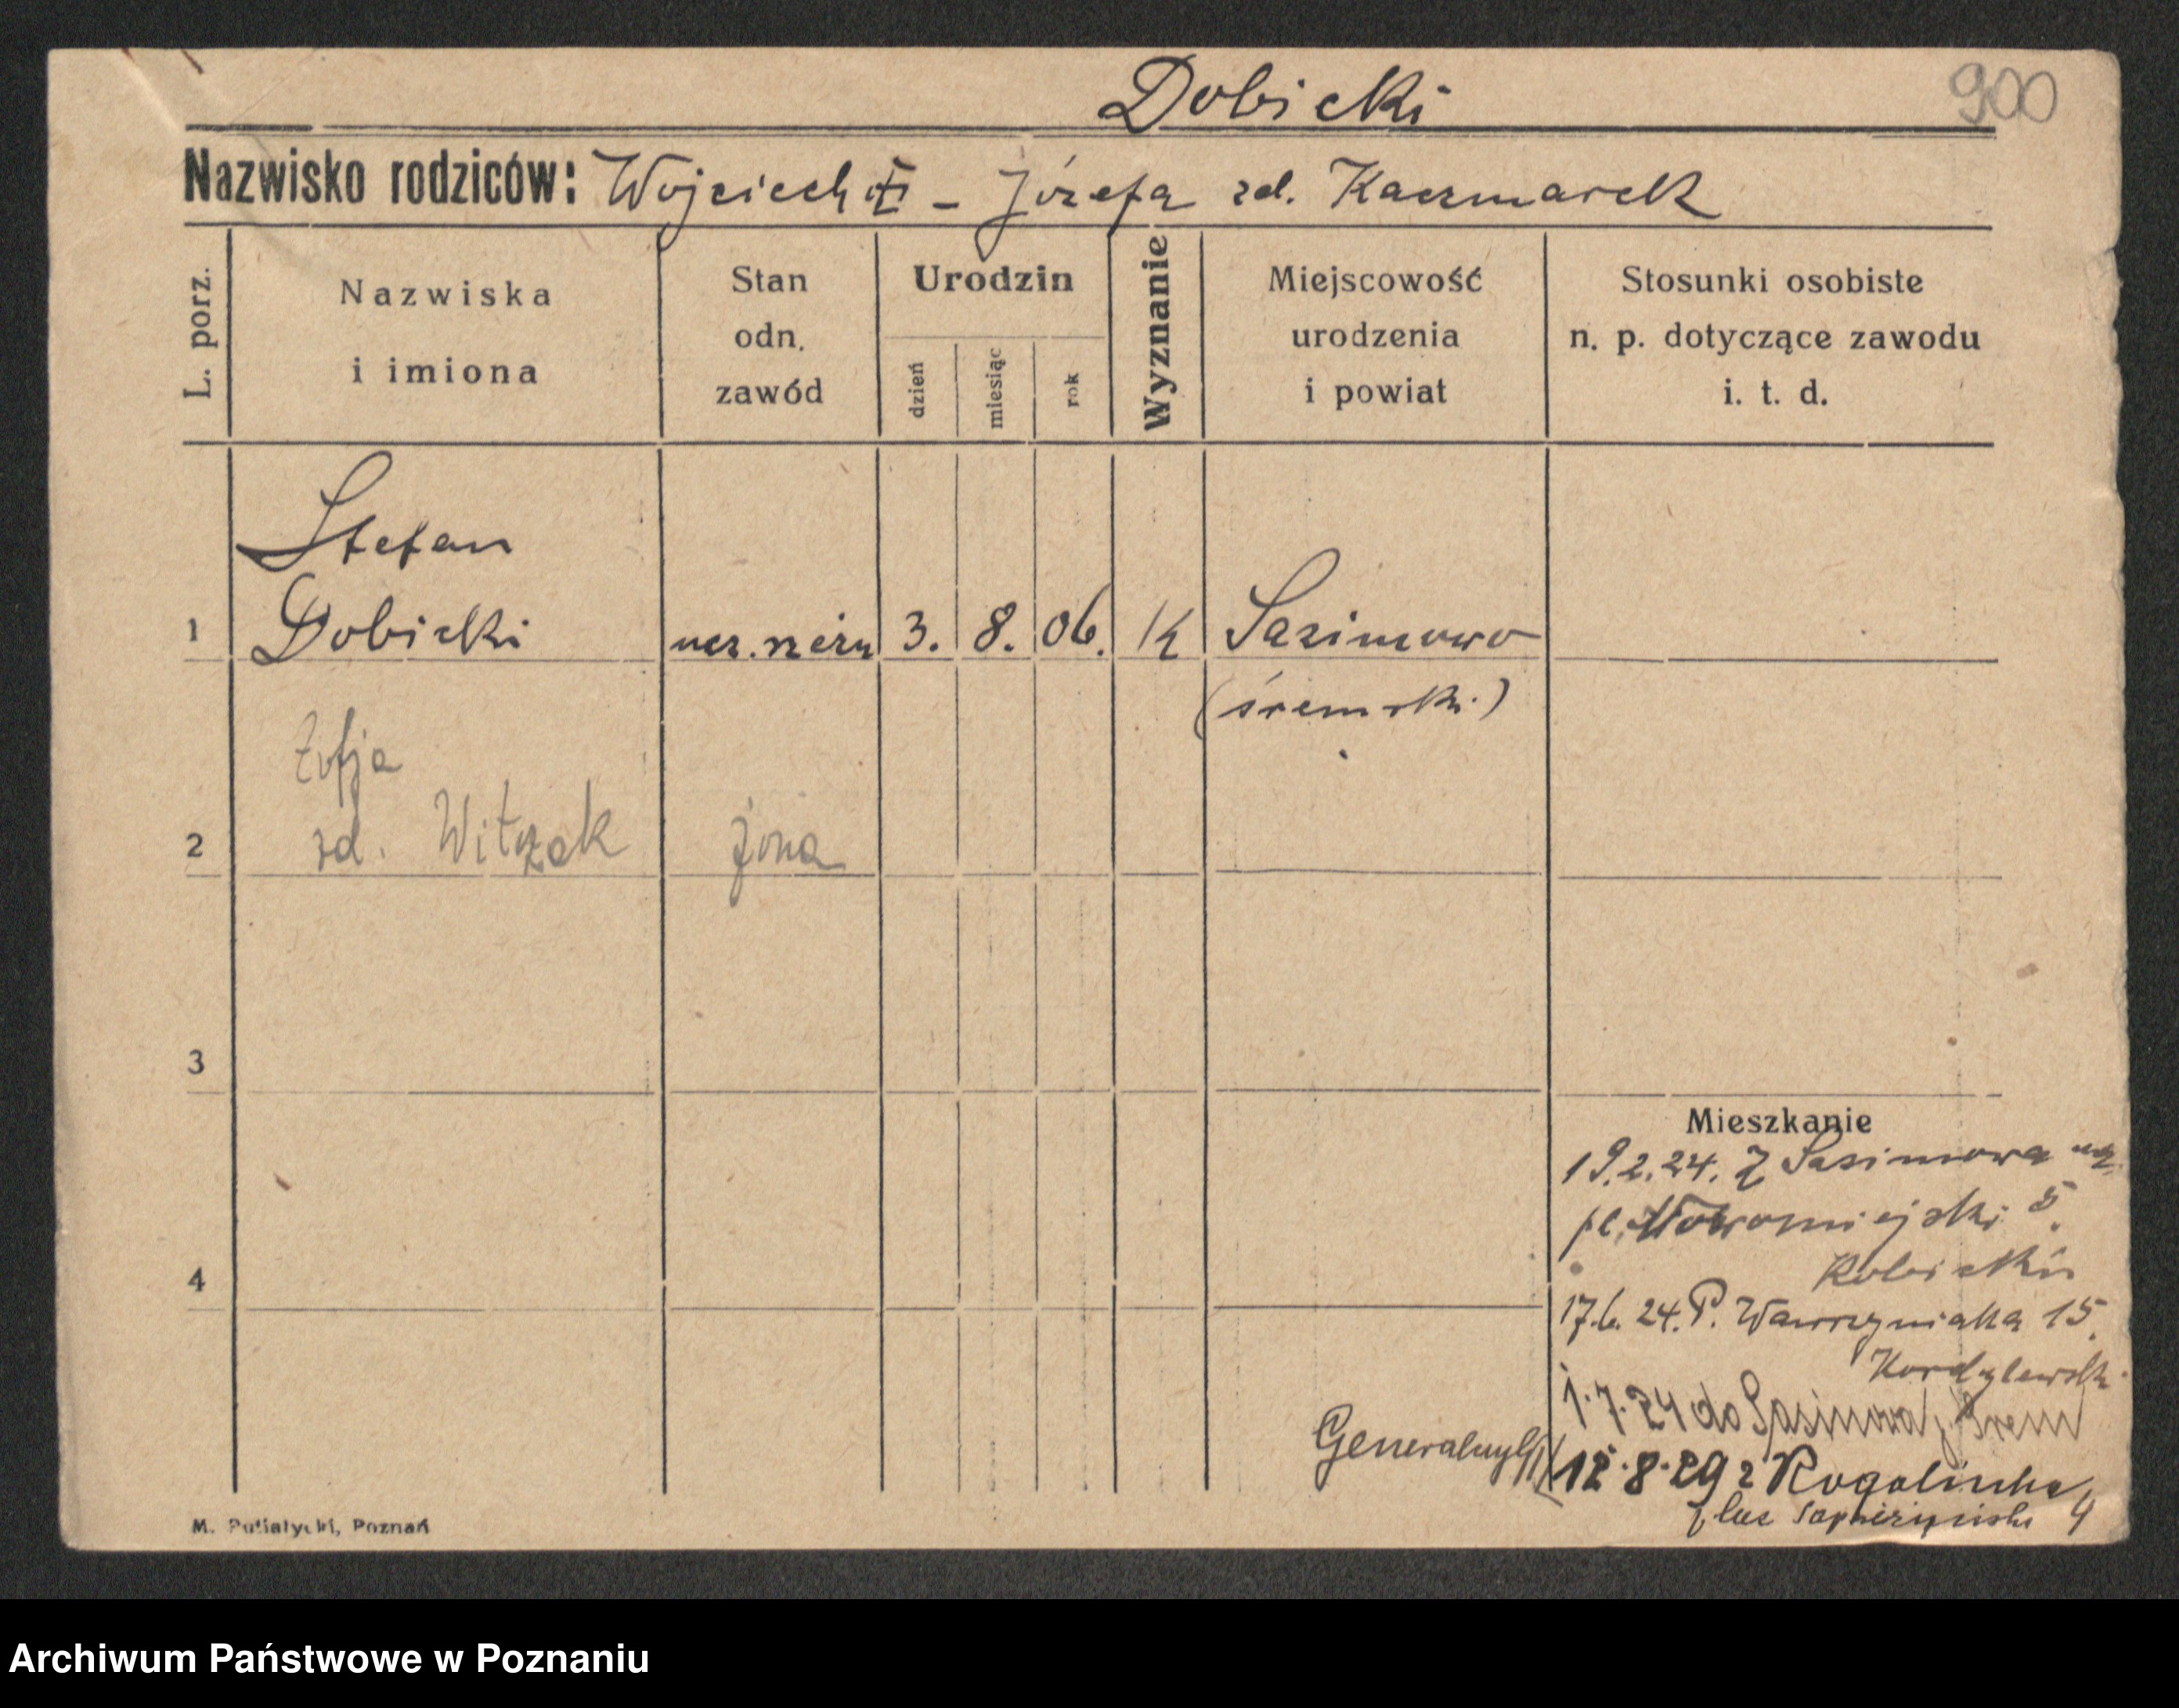 Dobicki 900
Nazwisko rodziców: Wojciech – Józefa zd. Kaczmarek
L. porz.
Nazwiska
i imiona
Stan
odn.
zawód
Urodzin
dzień
miesiąc
rok
Wyznanie
Miejscowość
urodzenia
i powiat
Stosunki osobiste
n. p. dotyczące zawodu
i. t. d.
Stefan
1 Dobicki ucz. rzeźn 3. 8. 06. K Sasinowo
(śremski)
Zofja
2 zd. Witczak żona
3
Mieszkanie
19.2.24. z Sasinowa na
pl. Nowomiejski 5.
4
17.6.24. P. Wawrzyniaka 15.
Kordylewski
1.7.24 do Sasinowa, Śrem
12.8.29 z Rogalinka
plac Sapieżyński 4
M. Putiatycki, Poznań
Archiwum Państwowe w Poznaniu